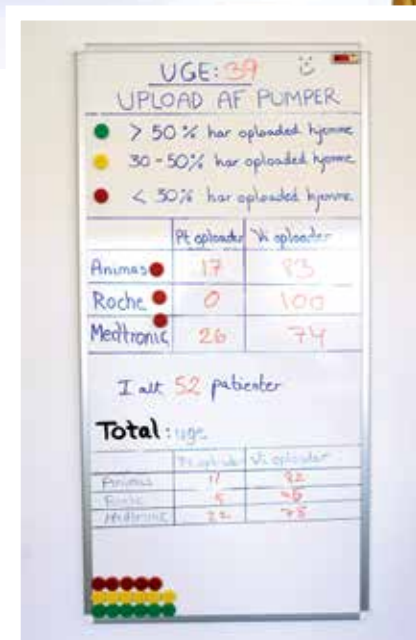 UGE: 39
UPLOAD AF PUMPER
> 50 % har oploaded hjemme
30 - 50% har oploaded hjemme
< 30% har oploaded hjemme
Pt oploader Vi oploader
Animas 17 83
Roche 0 100
Medtronic 26 74
I alt 52 patienter
Total: uge
Pt oploader Vi oploader
Animas 82
Roche 5
Medtronic 22 78